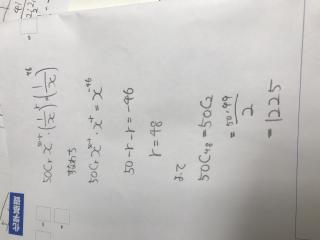 50Cr x^50-r · (1/x)^r = (1/x)^46
すなわち
50Cr x^50-r · x^-r = x^-46
50-r-r = -46
r = 48
よって
50C48 = 50C2
= 50·49/2
= 1225